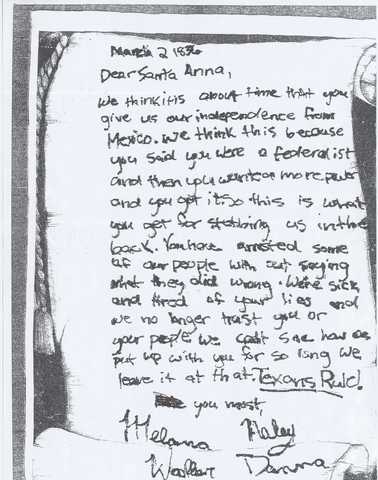 March 2 1836
Dear Santa Anna,
We think it is about time that you
give us our independence from
Mexico. We think this because
you said you were a federalist
and then you wanted more power
and you got it so this is what
you get for stabbing us in the
back. You have arrested some
of our people with out saying
what they did wrong. We're sick
and tired of your lies and
we no longer trust you or
your people we can't see how we
put up with you for so long we
leave it at that. Texans Rule!
you most,
Haley